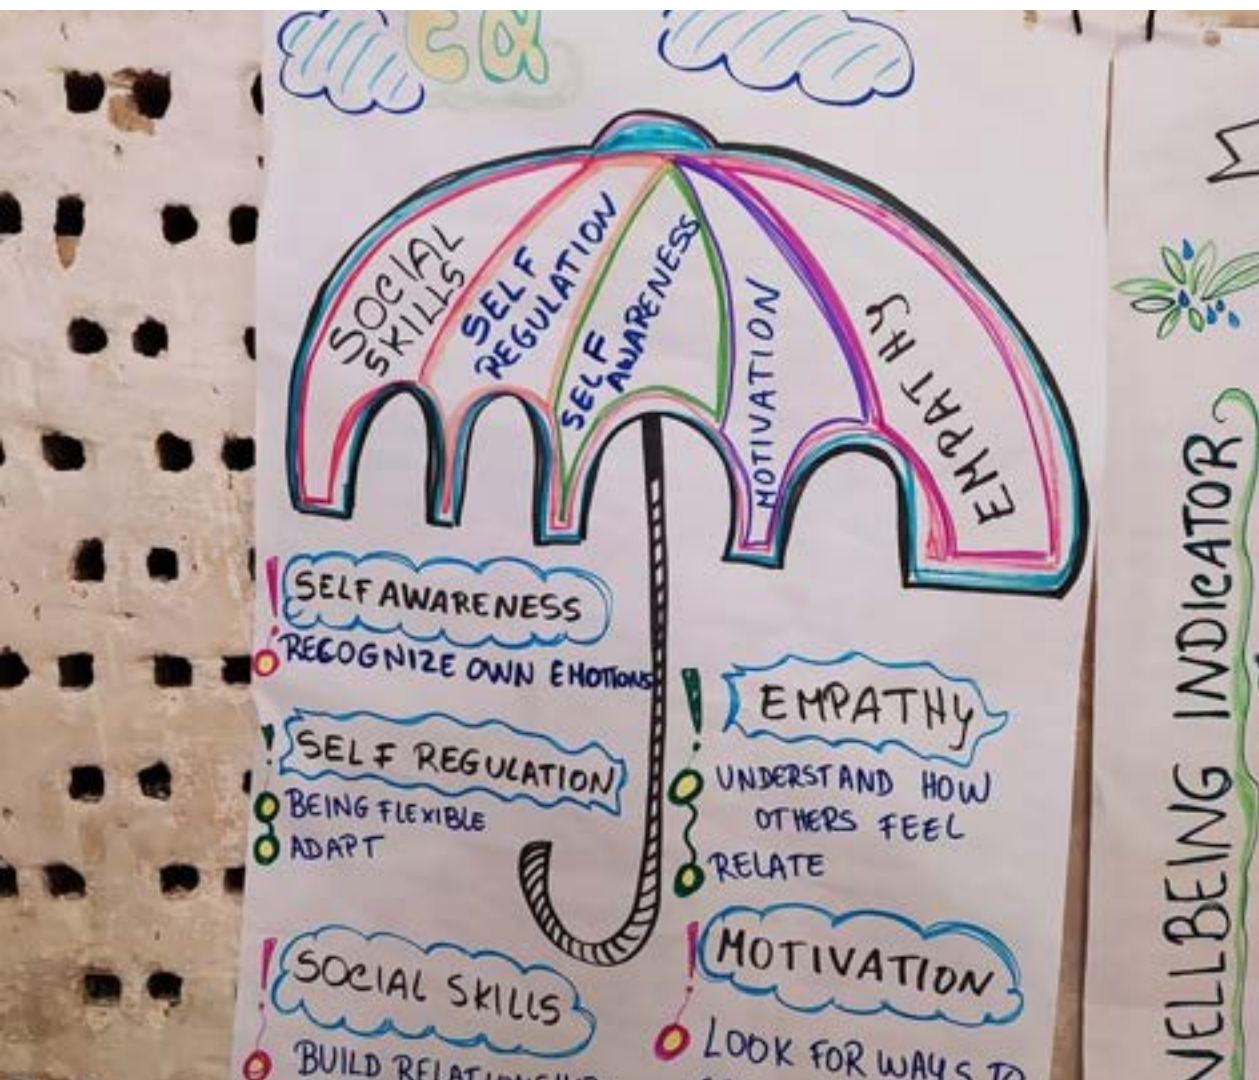 EQ
SOCIAL
SKILLS
SELF
REGULATION
SELF
AWARENESS
MOTIVATION
EMPATHY
SELF AWARENESS
RECOGNIZE OWN EMOTIONS
SELF REGULATION
BEING FLEXIBLE
ADAPT
SOCIAL SKILLS
BUILD
EMPATHY
UNDERSTAND HOW
OTHERS FEEL
RELATE
MOTIVATION
LOOK FOR WAYS TO
WELLBEING INDICATOR